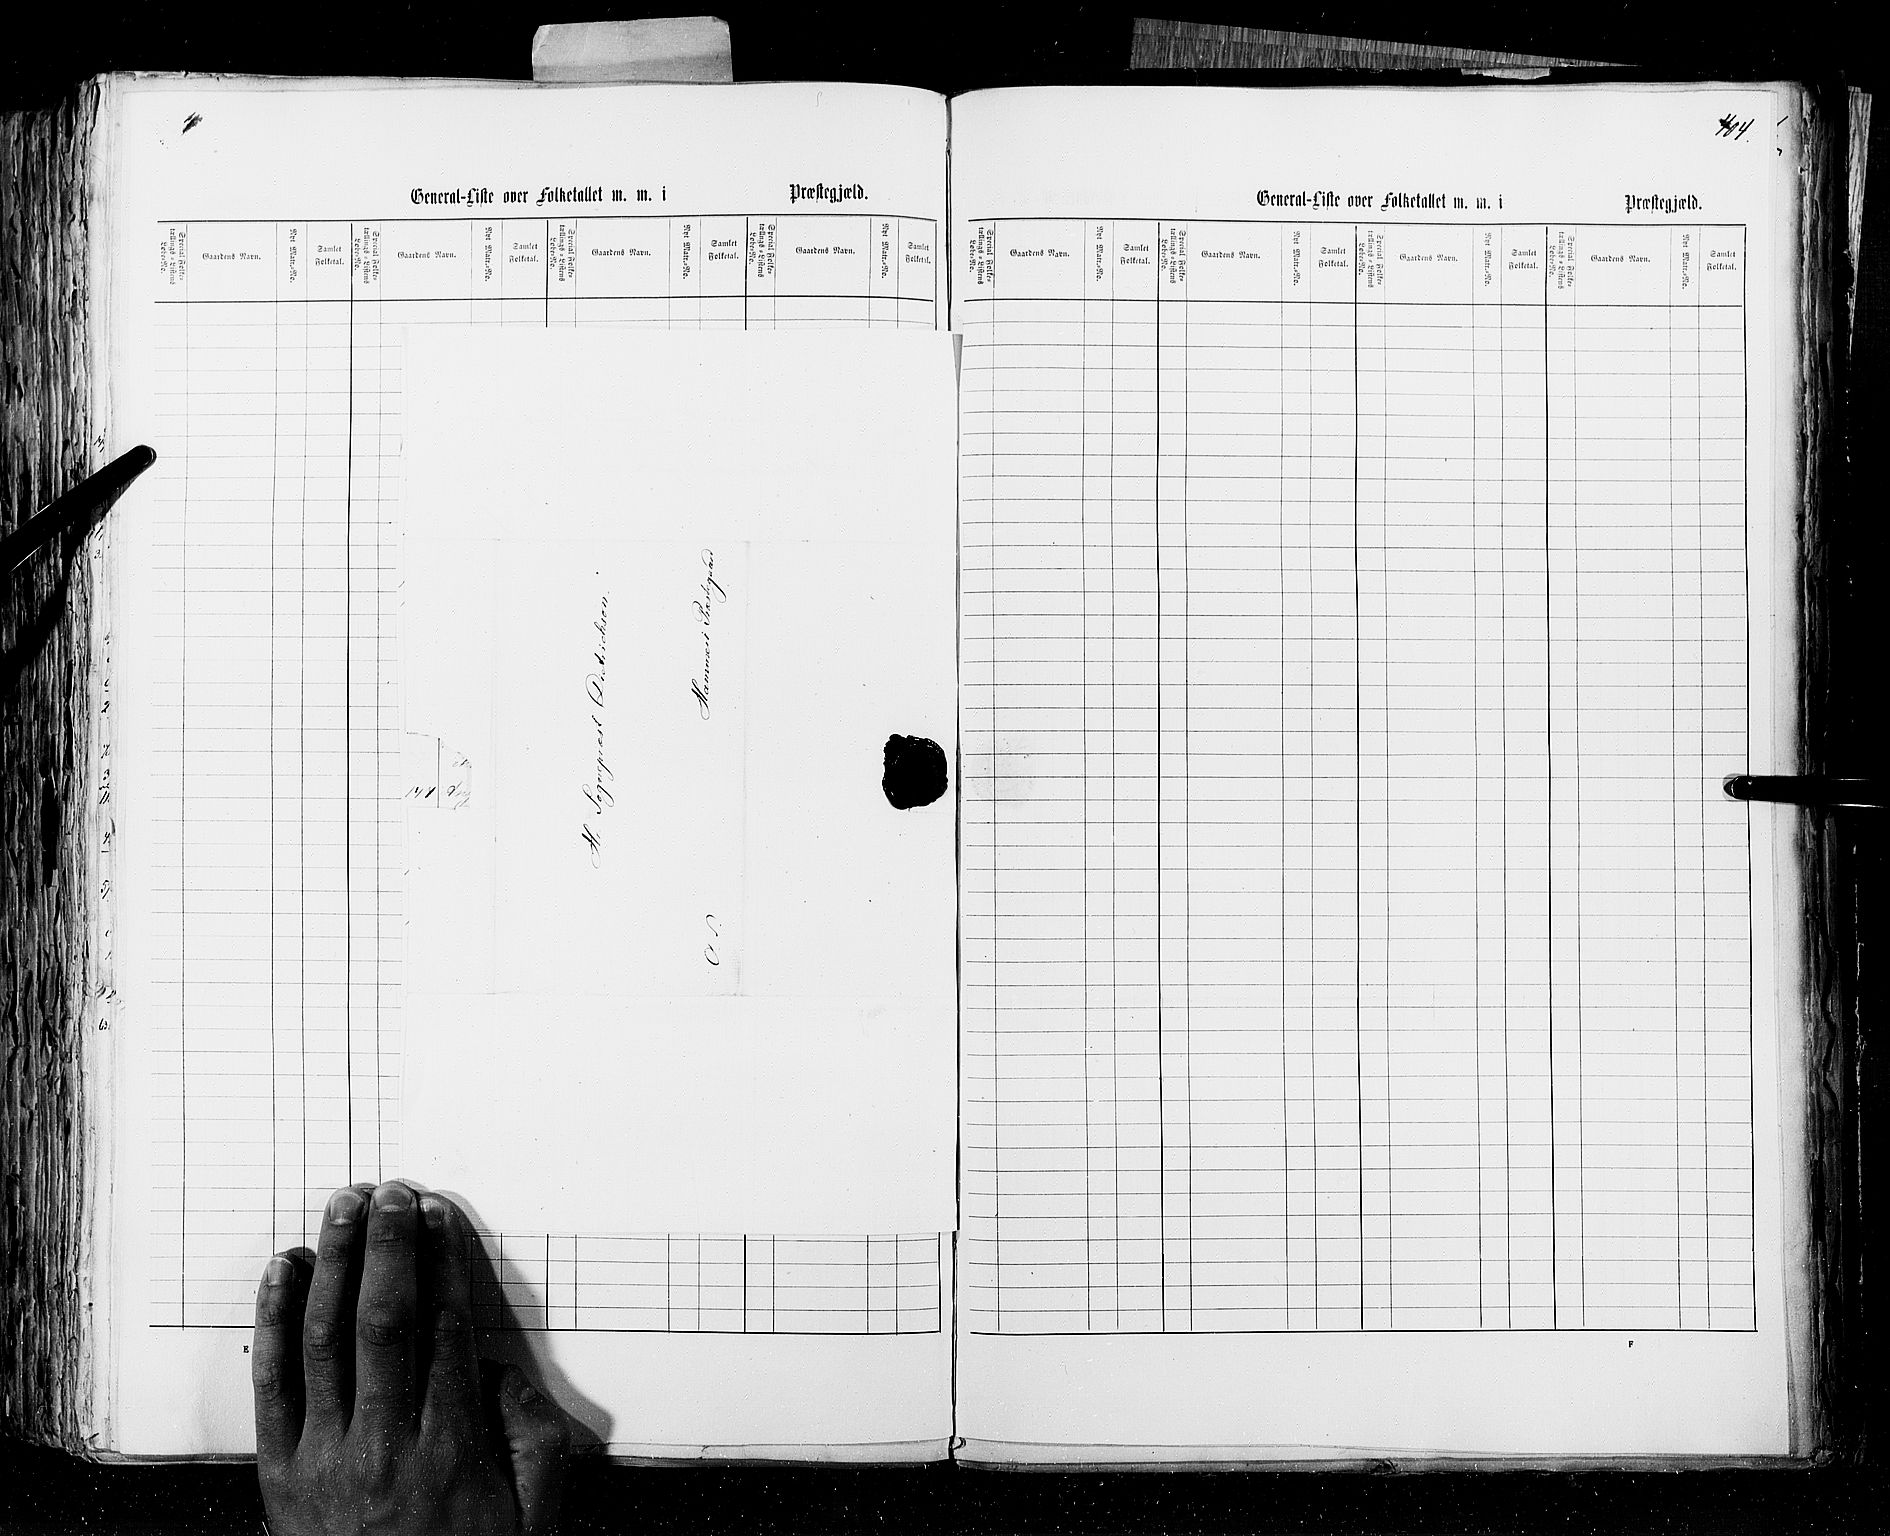 404.
General-Liste over Folketallet m. m. i Præstegjæld.
Special Folke-
tællings-Listens
Løbe-No.
Gaardens Navn.
Nyt Matr.-No.
Samlet
Folketal.
Special Folke-
tællings-Listens
Løbe-No.
Gaardens Navn.
Nyt Matr.-No.
Samlet
Folketal.
Special Folke-
tællings-Listens
Løbe-No.
Gaardens Navn.
Nyt Matr.-No.
Samlet
Folketal.
Special Folke-
tællings-Listens
Løbe-No.
Gaardens Navn.
Nyt Matr.-No.
Samlet
Folketal.
H. Sognepræst Diedrichson.
Hammers Præstegaard
O. S.
E
General-Liste over Folketallet m. m. i Præstegjæld.
Special Folke-
tællings-Listens
Løbe-No.
Gaardens Navn.
Nyt Matr.-No.
Samlet
Folketal.
Special Folke-
tællings-Listens
Løbe-No.
Gaardens Navn.
Nyt Matr.-No.
Samlet
Folketal.
Special Folke-
tællings-Listens
Løbe-No.
Gaardens Navn.
Nyt Matr.-No.
Samlet
Folketal.
Special Folke-
tællings-Listens
Løbe-No.
Gaardens Navn.
Nyt Matr.-No.
Samlet
Folketal.
F